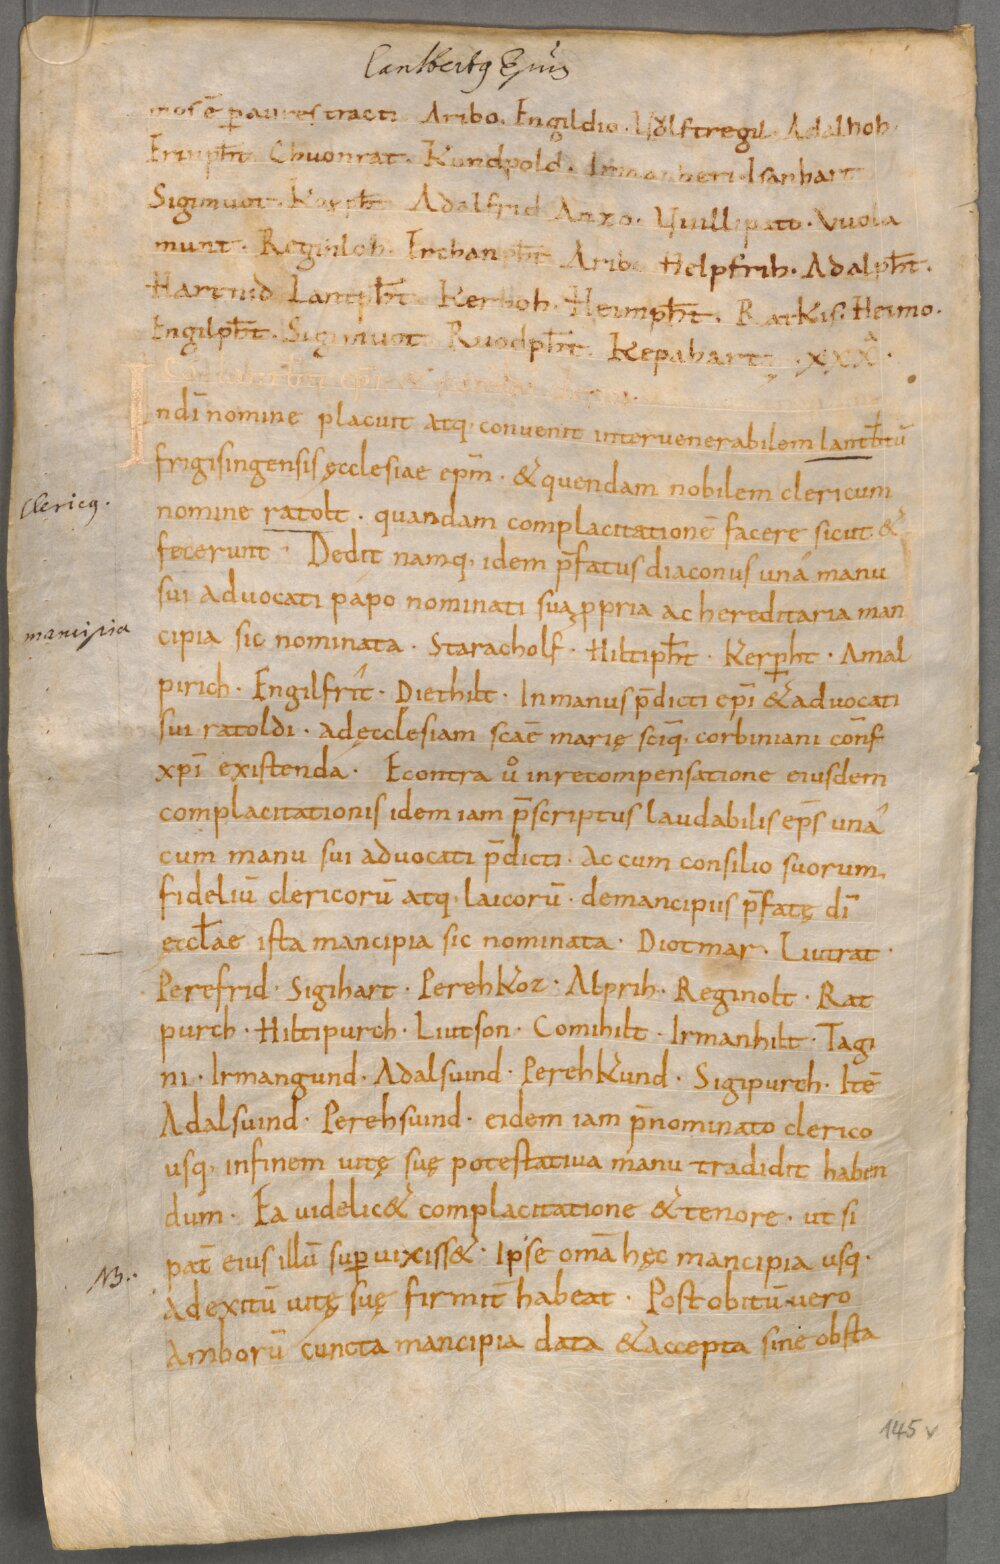 Lantbertus Epūs
mos ē p aures tracti Aribo. Engildio. Uuolftregil. Adalhoh.
Erinp̄ht Chuonrat. Kundpold. Irmanheri. Isanhart
Sigimuot. Kerp̄ht Adalfrid Anzo. Uuillipato. Vuola
munt. Reginloh. Erchanp̄ht Aribo Helpfrih. Adalp̄ht.
Hartnid Lantp̄ht Kerhoh. Heimp̄ht. RatKis. Heimo.
Engilp̄ht. Sigimuot Ruodp̄ht. Kepahart. XXX.
Indī nomine placuit atq, convenit intervenerabilem lantb̄tū
frigisingensis ęcclesiae ep̄m . & quendam nobilem clericum
Clericus.
nomine ratolt . quandam complacitationē facere sicut &
fecerunt . Dedit namq, idem p̄fatus diaconus una manu
sui advocati papo nominati sua ppria ac hereditaria man
mancipia
cipia sic nominata . Staracholf . Hiltip̄ht . Kerp̄ht . Amal
pirich . Engilfrit . Diethilt . In manus p̄dicti ep̄i & advocati
sui ratoldi . ad ęcclesiam scāe marię sciq̄, corbiniani cōnf
xp̄i existenda . Econtra ů in recompensatione eiusdem
complacitationis idem iam p̄scriptus laudabilis ep̄s una
cum manu sui advocati p̄dicti . Ac cum consilio suorum
fideliū clericorū atq, laicorū . de mancipiis p̄fatę dī
ęccl̄ae ista mancipia sic nominata . Diotmar . Liutrat .
Perefrid . Sigihart . PerehKoz . Alprih . Reginolt . Rat
purch . Hiltipurch . Liutson . Comihilt . Irmanhilt . Tagi
ni . Irmangund . Adalsuind . PerehKund . Sigipurch . Itē
Adalsuind . Perehsuind . eidem iam p̄nominato clerico
usq, infinem uitę suę potestatiua manu tradidit haben
dum . Ea uidelic& complacitatione & tenore . ut si
pat̄ eius illū supuixiss& . Ipse omā hęc mancipia usq.
NB.
Ad exitū uitę suę firmit̄ habeat . Post obitū vero
Amborū cuncta mancipia data & accepta sine obsta
145 v